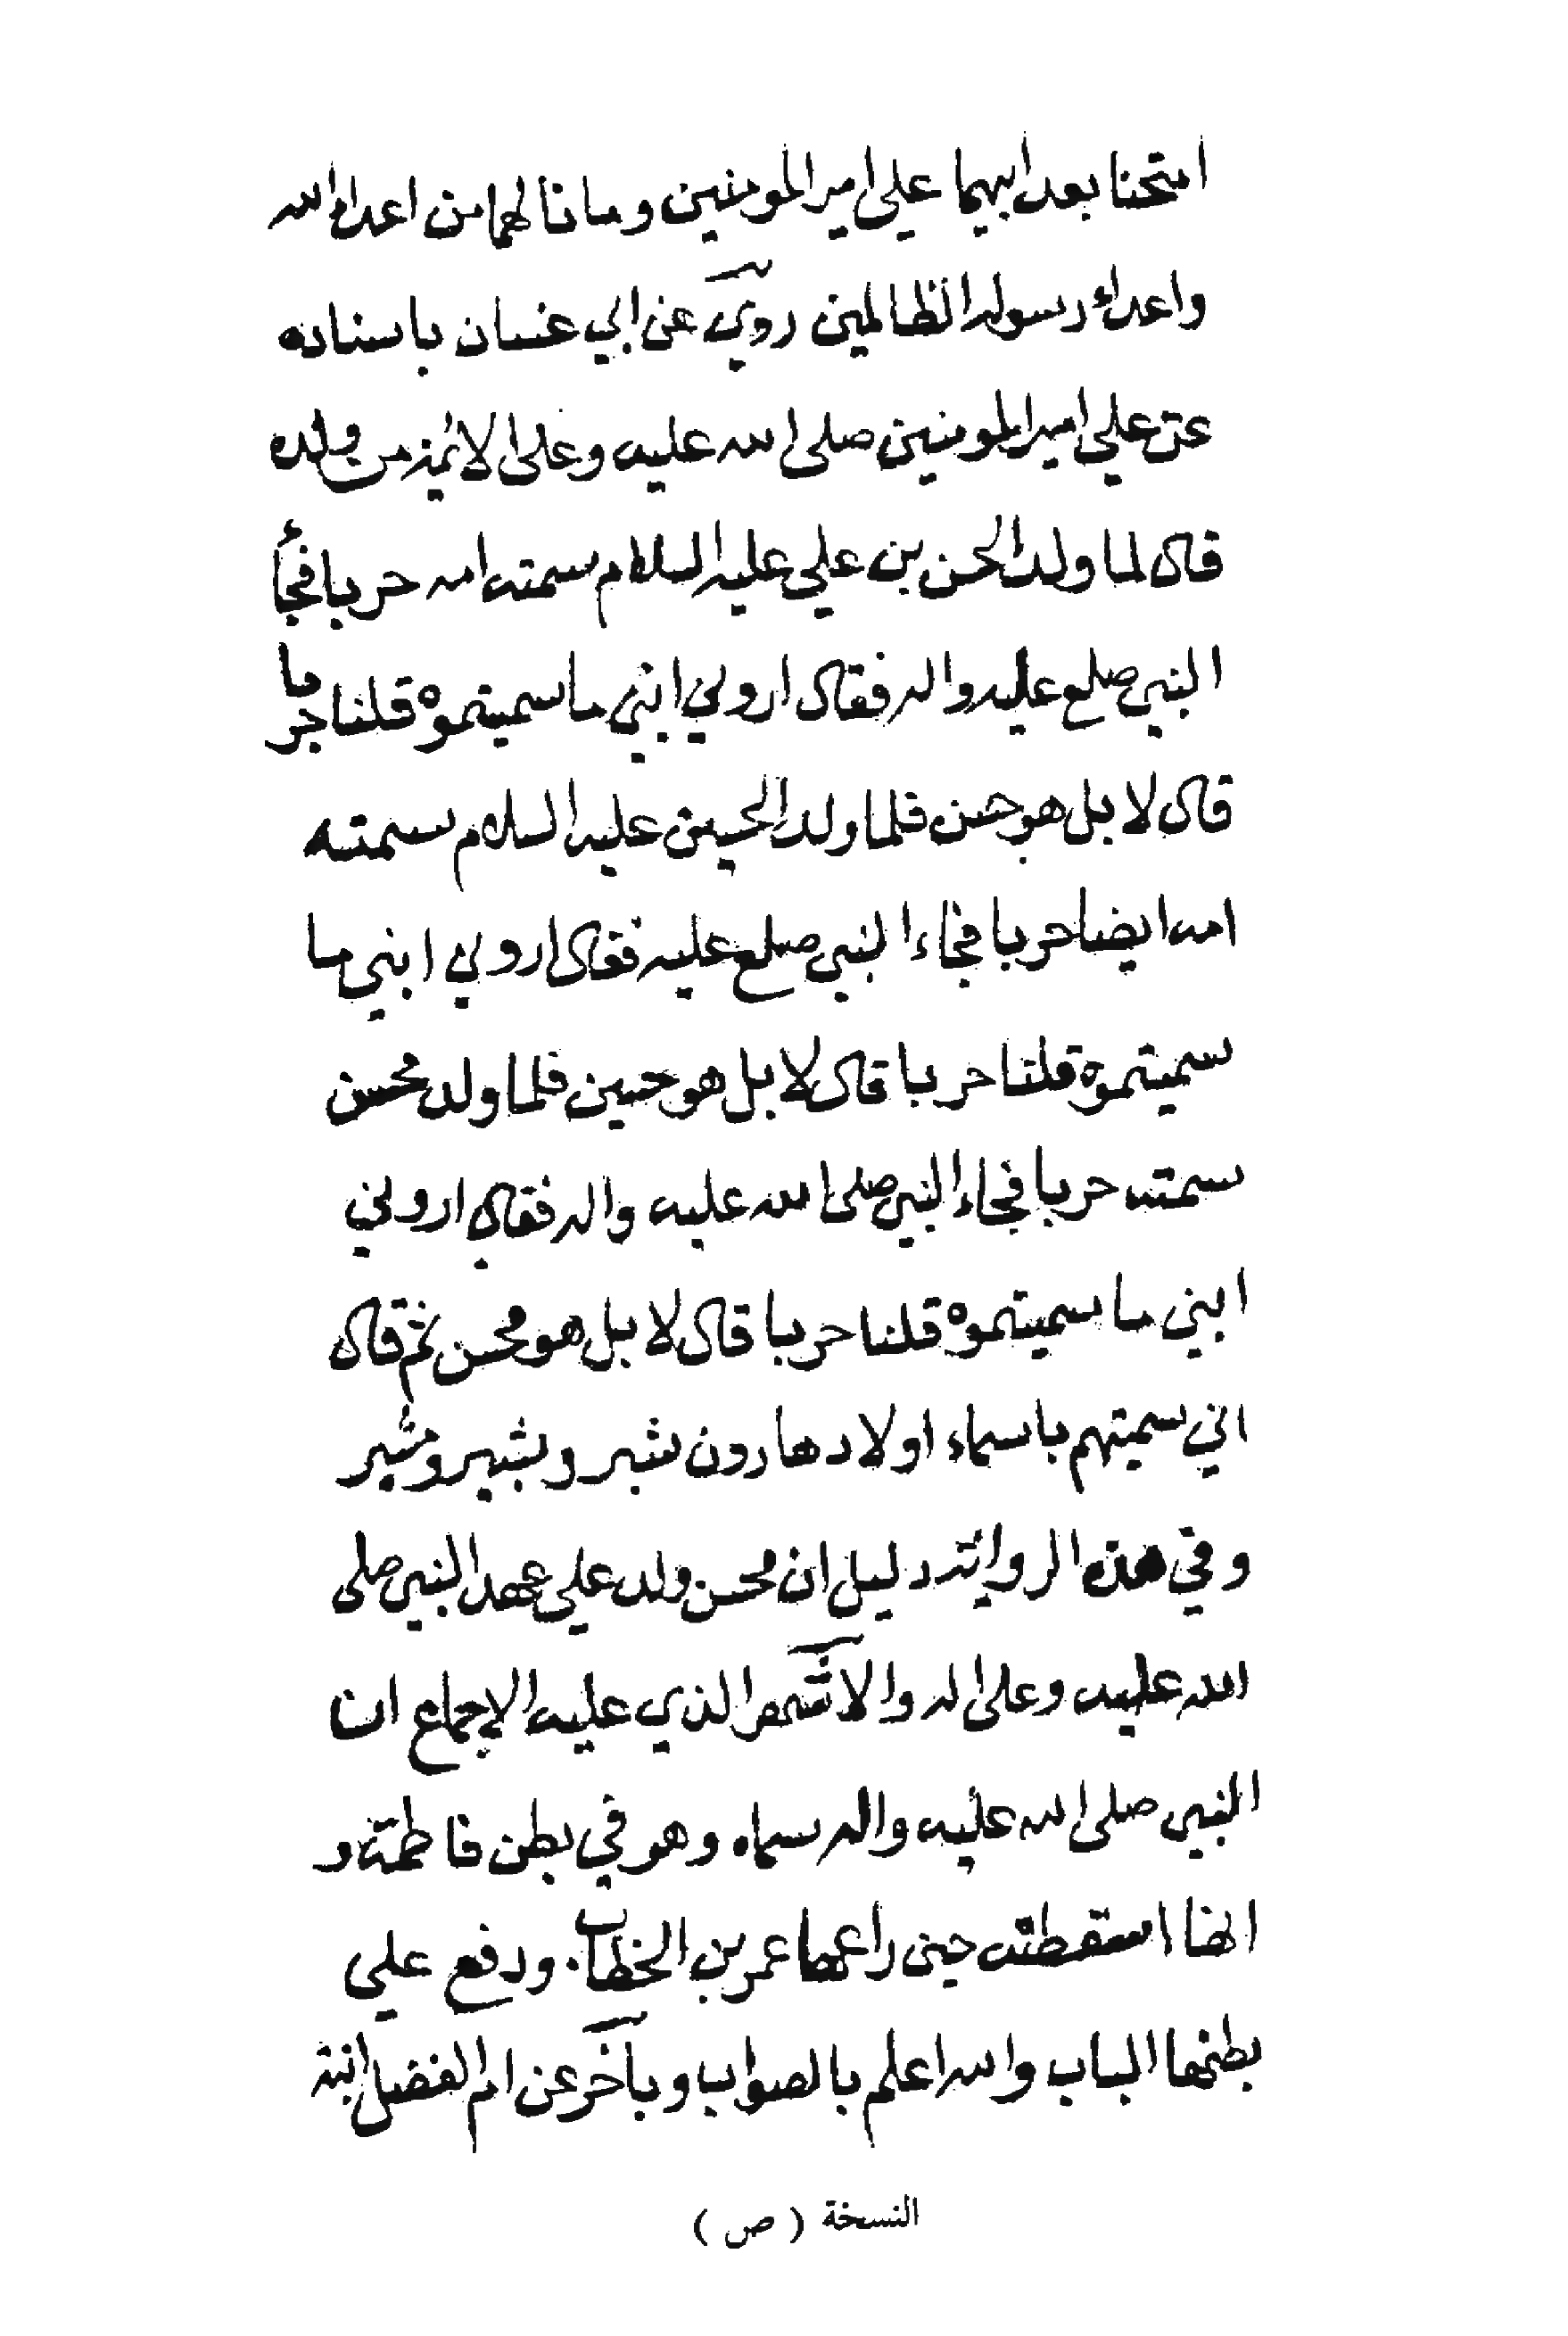 امتحنا بعد ابيهما علي امير المومنين وما نا لهما من اعداء الله
واعداء رسوله الظالمين روي عن ابي غسان باسناده
عن علي امير المومنين صلى الله عليه وعلى الائمة من ولده
قال لما ولد الحسن بن علي عليه السلام سمته امه حربا فجأ
النبي صلع عليه واله فقال اروني ابني ما سميتموه قلنا حربا
قال لا بل هو حسن فلما ولد الحسين عليه السلام سمته
امه ايضا حربا فجاء النبي صلع عليه فقال اروني ابني ما
سميتموه قلنا حربا قال لا بل هو حسين فلما ولد محسن
سمته حربا فجاء النبي صلى الله عليه واله فقال اروني
ابني ما سميتموه قلنا حربا قال لا بل هو محسن ثم قال
اني سميتهم باسماء اولاد هارون شبر وشبير ومشبر
وفي هذه الرواية دليل ان محسن ولد على عهد النبي صلى
الله عليه وعلى اله والاشهر الذي عليه الاجماع ان
النبي صلى الله عليه واله سماه وهو في بطن فاطمة و
انها اسقطته حين راعها عمر بن الخطاب ودفع على
بطنها الباب والله اعلم بالصواب وبآخر عن ام الفضل ابنة
النسخة ( ص )